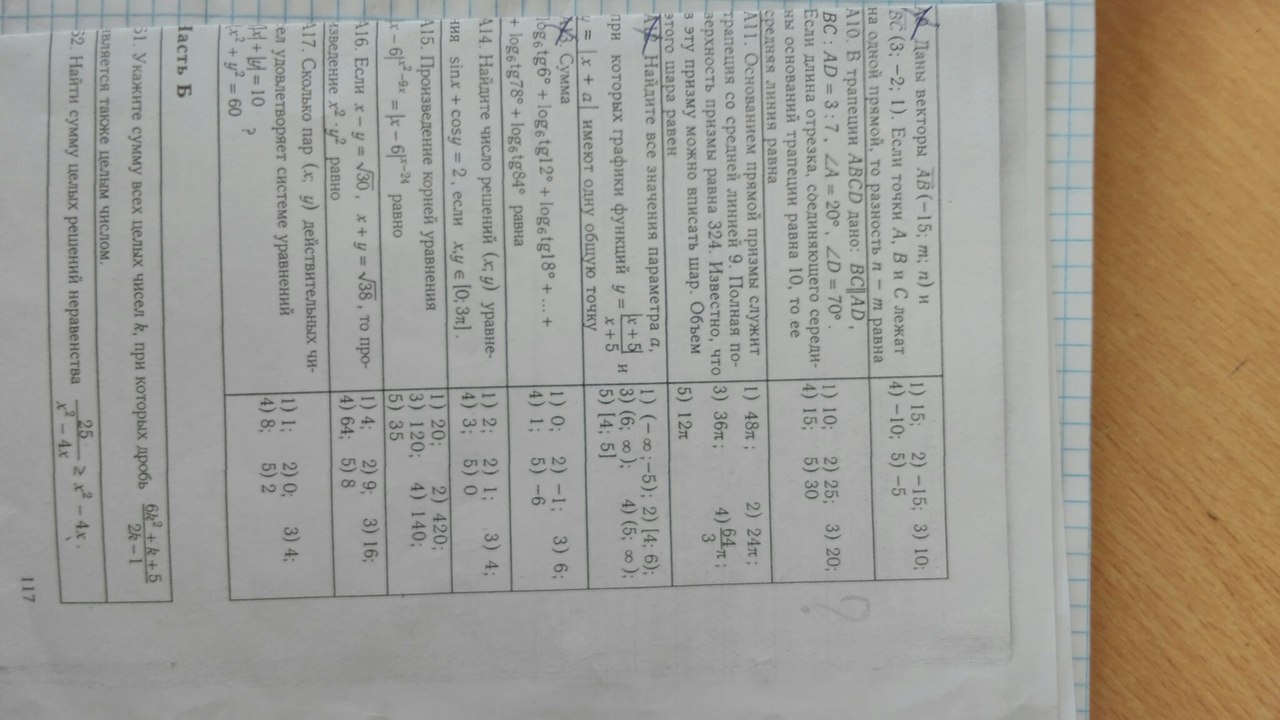 Даны векторы AB (−15; m; n) и
BC (3; −2; 1). Если точки A, B и C лежат
на одной прямой, то разность n − m равна
1) 15; 2) −15; 3) 10;
4) −10; 5) −5
А10. В трапеции ABCD дано: BC∥AD,
BC : AD = 3 : 7, ∠A = 20°, ∠D = 70°.
Если длина отрезка, соединяющего середи-
ны оснований трапеции равна 10, то ее
средняя линия равна
1) 10; 2) 25; 3) 20;
4) 15; 5) 30
А11. Основанием прямой призмы служит
трапеция со средней линией 9. Полная по-
верхность призмы равна 324. Известно, что
в эту призму можно вписать шар. Объем
этого шара равен
1) 48π; 2) 24π;
3) 36π; 4) 64/3 π;
5) 12π
Найдите все значения параметра a,
при которых графики функций y = |x + 5|/(x + 5) и
y = |x + a| имеют одну общую точку
1) (−∞;−5); 2) [4; 6);
3) (6; ∞); 4) (5; ∞);
5) [4; 5]
Сумма
log₆tg6° + log₆tg12° + log₆tg18° + ... +
+ log₆tg78° + log₆tg84° равна
1) 0; 2) −1; 3) 6;
4) 1; 5) −6
А14. Найдите число решений (x; y) уравне-
ния sinx + cosy = 2, если x,y ∈ [0; 3π].
1) 2; 2) 1; 3) 4;
4) 3; 5) 0
А15. Произведение корней уравнения
|x − 6|^(x²−9x) = |x − 6|^(x−24) равно
1) 20; 2) 420;
3) 120; 4) 140;
5) 35
А16. Если x − y = √30, x + y = √38, то про-
изведение x² · y² равно
1) 4; 2) 9; 3) 16;
4) 64; 5) 8
А17. Сколько пар (x; y) действительных чи-
сел удовлетворяет системе уравнений
|x| + |y| = 10
x² + y² = 60 ?
1) 1; 2) 0; 3) 4;
4) 8; 5) 2
Часть Б
Б1. Укажите сумму всех целых чисел k, при которых дробь (6k² + k + 5)/(2k − 1)
является также целым числом.
Б2. Найти сумму целых решений неравенства 25/(x² − 4x) ≥ x² − 4x.
117